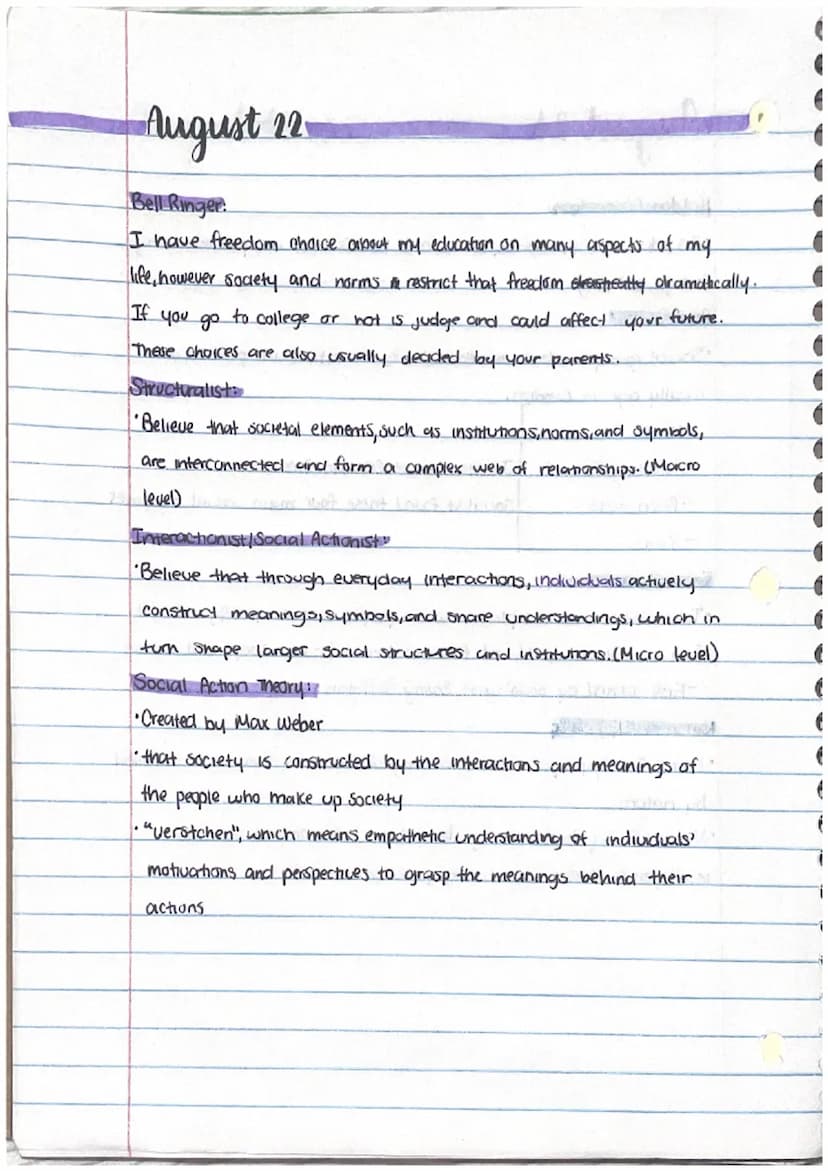 August 22
Bell Ringer:
I have freedom choice about my education on many aspects of my
life, however society and norms restrict that freedom dramatically.
If you go to college or not is judge and could affect your future.
These choices are also usually decided by your parents.
Structuralist:
• Believe that societal elements, such as institutions, norms, and symbols,
are interconnected and form a complex web of relationships. (Macro
level)
Interactionist/Social Actionist:
• Believe that through everyday interactions, individuals actively
construct meanings, symbols, and share understandings, which in
turn shape larger social structures and institutions. (Micro level)
Social Action Theory:
• Created by Max Weber
• that society is constructed by the interactions and meanings of
the people who make up society
• "verstchen", which means empathetic understanding of individuals'
motivations and perspectives to grasp the meanings behind their
actions